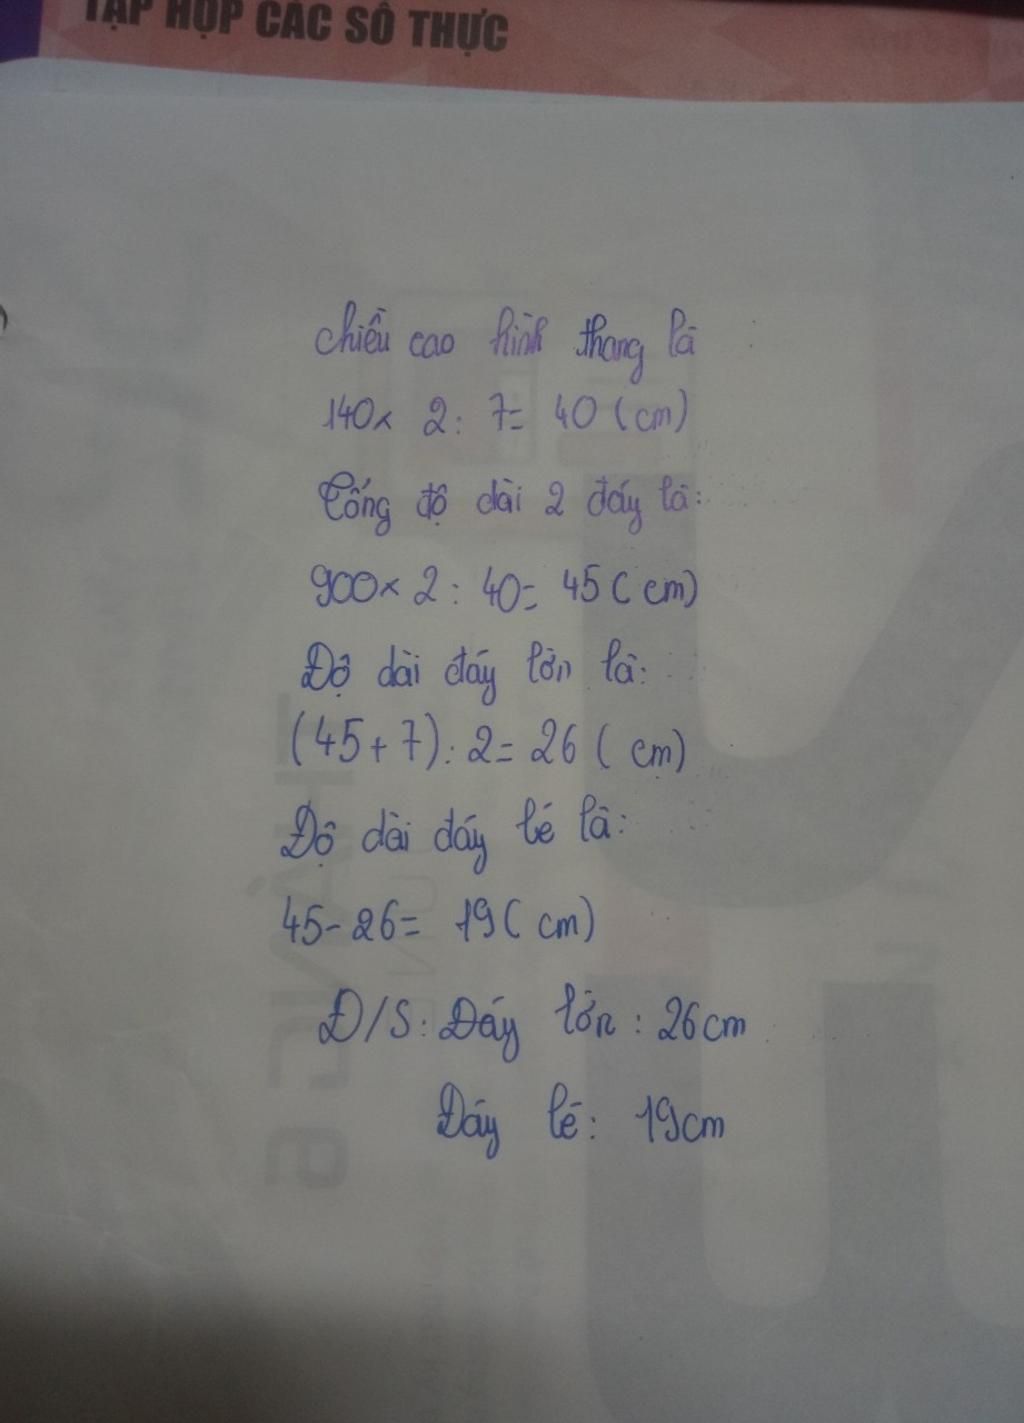 TẬP HỢP CÁC SỐ THỰC
Chiều cao hình thang là
140 x 2 : 7 = 40 (cm)
Tổng độ dài 2 đáy là:
900 x 2 : 40 = 45 (cm)
Độ dài đáy lớn là:
(45 + 7) : 2 = 26 (cm)
Độ dài đáy bé là:
45 - 26 = 19 (cm)
Đ/S: Đáy lớn : 26cm
Đáy bé : 19cm